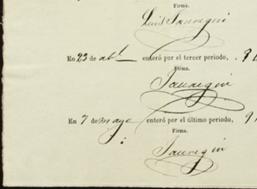 Firma.
Luis Jauregui
En 23 de abl enteró por el tercer periodo,
Firma.
Jauregui
En 7 de mayo enteró por el último periodo,
Firma.
Jauregui